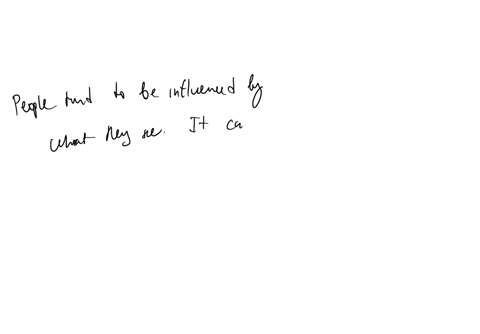 People tend to be influenced by
what they see. It ca